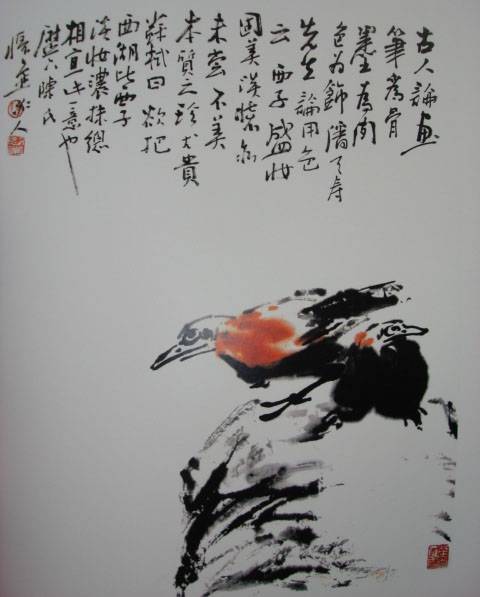 古人論画
筆為骨
墨為肉
色为飾潘天寿
先生論用色
云西子盛妝
固美淡裝亦
未嘗不美
本質之珍尤貴
蘇軾曰欲把
西湖比西子
淡妝濃抹總
相宜此意也